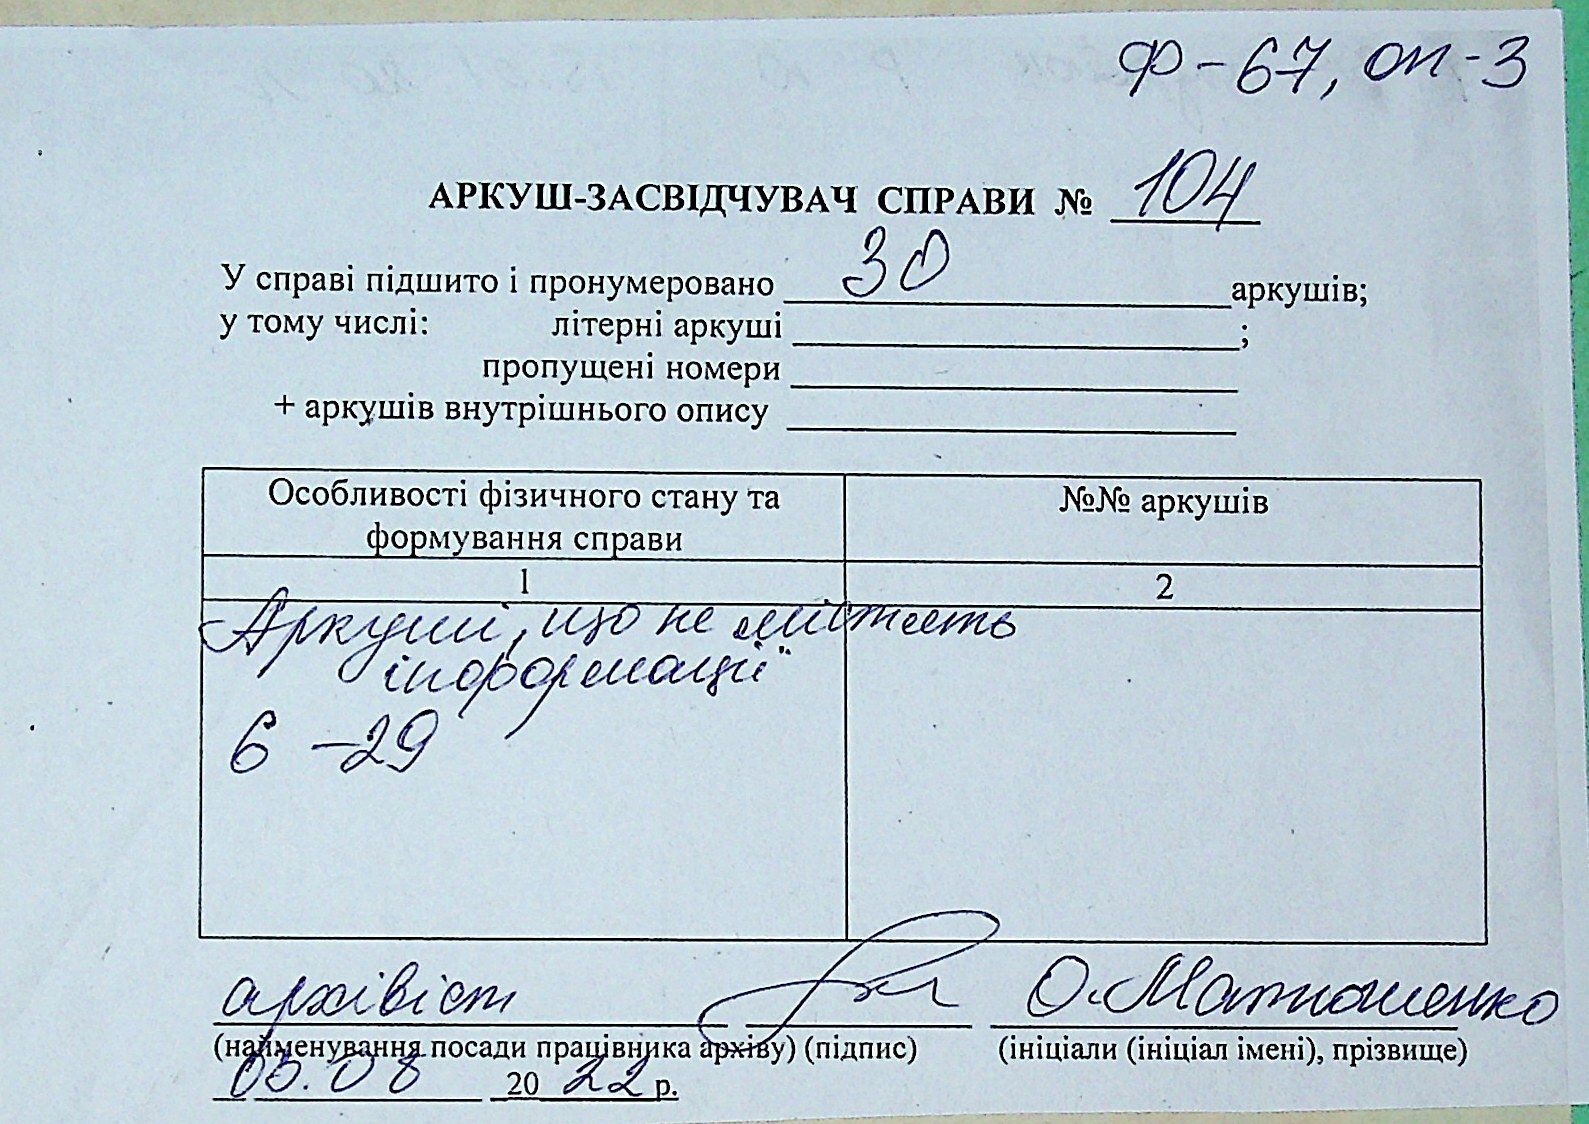 Ф-67, оп-3
АРКУШ-ЗАСВІДЧУВАЧ СПРАВИ № 104
У справі підшито і пронумеровано 30 аркушів;
у тому числі: літерні аркуші ;
пропущені номери
+ аркушів внутрішнього опису
Особливості фізичного стану та формування справи
№№ аркушів
1 2
Аркуші, що не містять
інформації
6 -29
архівіст О. Матюшенко
(найменування посади працівника архіву) (підпис) (ініціали (ініціал імені), прізвище)
03.08 2022 р.